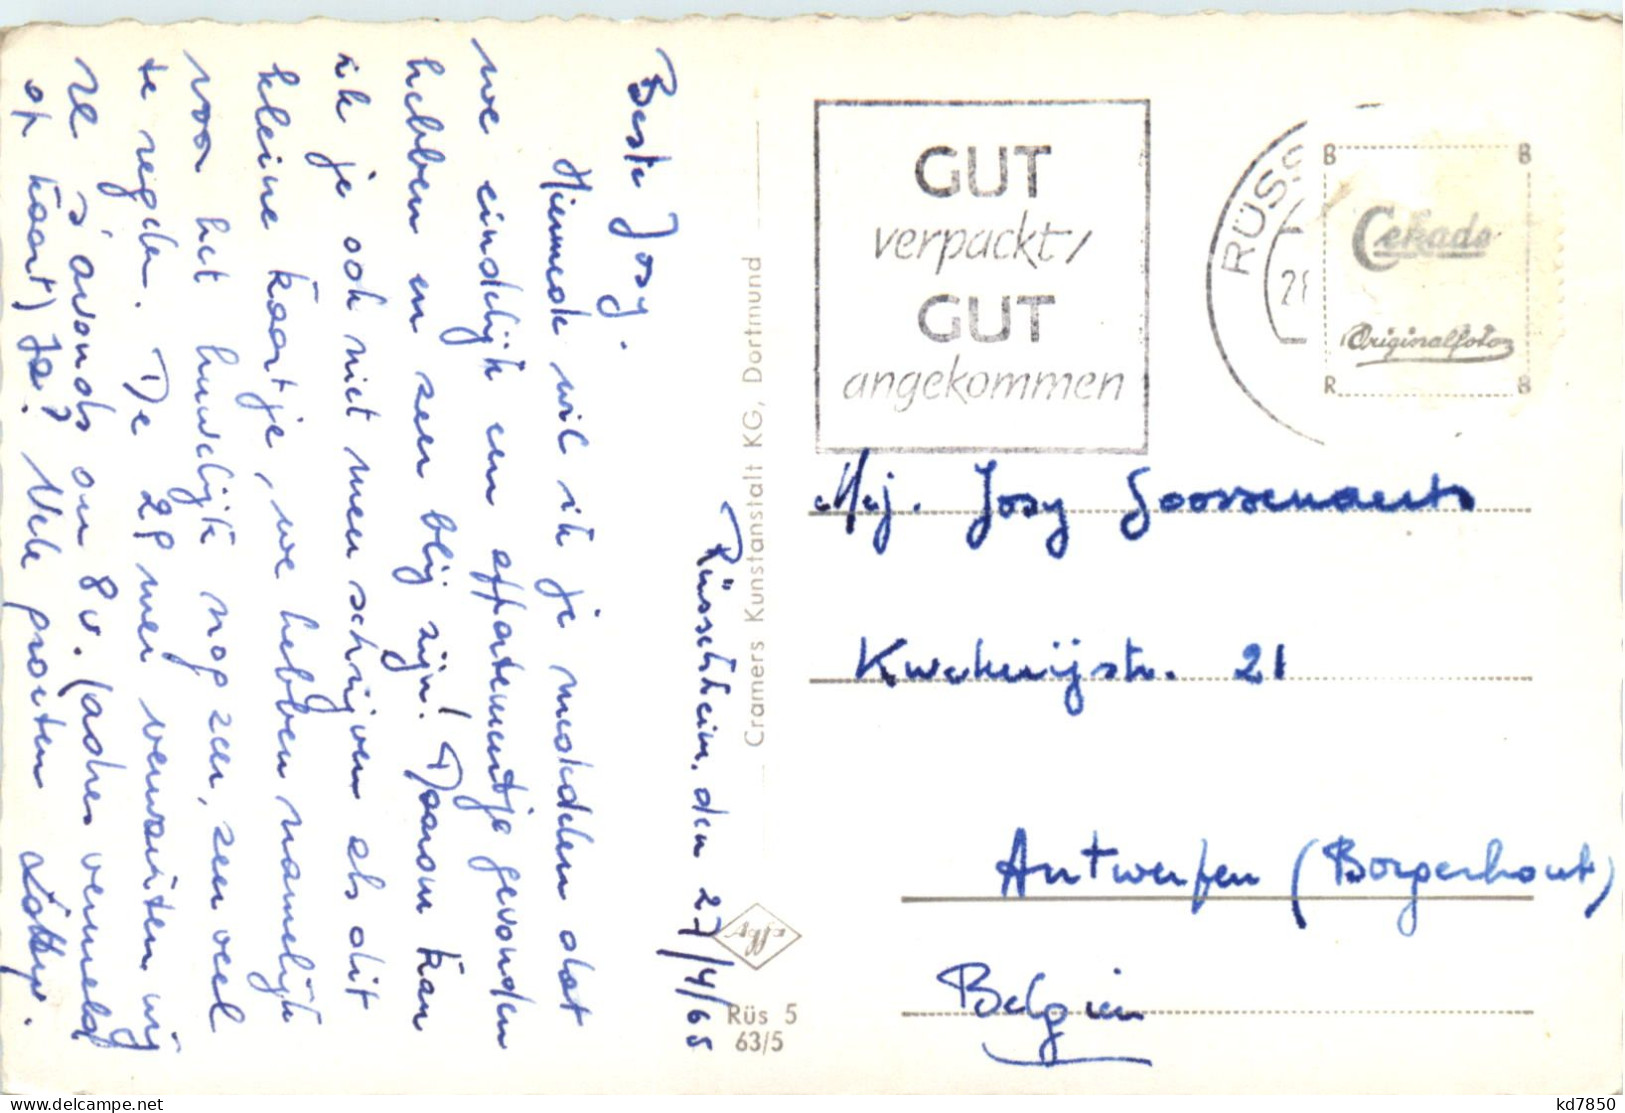 Rüsselsheim, den 27/4/65
Beste Josy.
Hiermede wil ik je mededelen dat
we eindelijk een appartementje gevonden
hebben en zeer blij zijn! Daarom kan
ik je ook niet meer schrijven als dit
kleine kaartje, we hebben namelijk
voor het huwelijk nog zeer, zeer veel
te regelen. De 28 mei verwachten wij
je 's avonds om 8u. (adres vermeld
op kaart) Ja? Vele groeten
GUT
verpackt,
GUT
angekommen
RÜSS
B B
Cekade
Originalfoto
R 8
Mej. Josy Goossenaerts
Kwekerijstr. 21
Antwerpen (Borgerhout)
Belgien
Cramers Kunstanstalt KG, Dortmund
Agfa
Rüs 5
63/5
kd7850